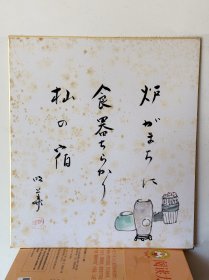 炉がまちに
食器ちらかり
杣の宿